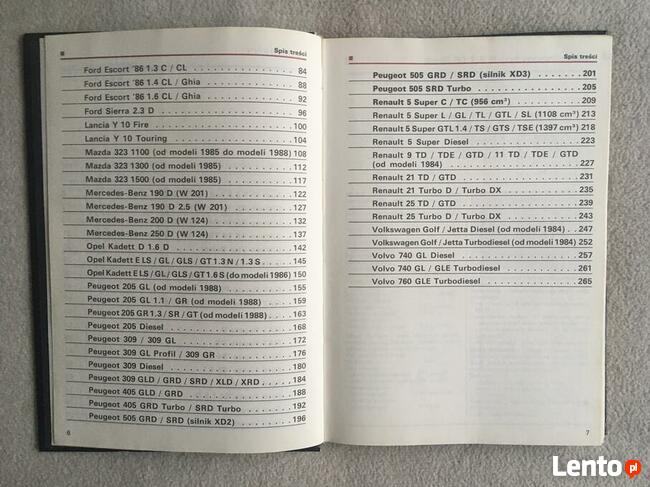 Spis treści
Ford Escort '86 1.3 C / CL . . . . . . . . . . . . . . 84
Ford Escort '86 1.4 CL / Ghia . . . . . . . . . . . . 88
Ford Escort '86 1.6 CL / Ghia . . . . . . . . . . . . 92
Ford Sierra 2.3 D . . . . . . . . . . . . . . . . . . 96
Lancia Y 10 Fire . . . . . . . . . . . . . . . . . . 100
Lancia Y 10 Touring . . . . . . . . . . . . . . . . . 104
Mazda 323 1100 (od modeli 1985 do modeli 1988) 108
Mazda 323 1300 (od modeli 1985) . . . . . . . . . . 112
Mazda 323 1500 (od modeli 1985) . . . . . . . . . . 117
Mercedes-Benz 190 D (W 201) . . . . . . . . . . . . 122
Mercedes-Benz 190 D 2.5 (W 201) . . . . . . . . . . 127
Mercedes-Benz 200 D (W 124) . . . . . . . . . . . . 132
Mercedes-Benz 250 D (W 124) . . . . . . . . . . . . 137
Opel Kadett D 1.6 D . . . . . . . . . . . . . . . . . 142
Opel Kadett E LS / GL / GLS / GT 1.3 N / 1.3 S . . . 145
Opel Kadett E LS / GL / GLS / GT 1.6 S (do modeli 1986) 150
Peugeot 205 GL (od modeli 1988) . . . . . . . . . . 155
Peugeot 205 GL 1.1 / GR (od modeli 1988) . . . . . 159
Peugeot 205 GR 1.3 / SR / GT (od modeli 1988) . . . 163
Peugeot 205 Diesel . . . . . . . . . . . . . . . . . 168
Peugeot 309 / 309 GL . . . . . . . . . . . . . . . . 172
Peugeot 309 GL Profil / 309 GR . . . . . . . . . . . 176
Peugeot 309 Diesel . . . . . . . . . . . . . . . . . 180
Peugeot 309 GLD / GRD / SRD / XLD / XRD . . . . . 184
Peugeot 405 GLD / GRD . . . . . . . . . . . . . . . 188
Peugeot 405 GRD Turbo / SRD Turbo . . . . . . . . . 192
Peugeot 505 GRD / SRD (silnik XD2) . . . . . . . . . 196
6
Spis treści
Peugeot 505 GRD / SRD (silnik XD3) . . . . . . . . . 201
Peugeot 505 SRD Turbo . . . . . . . . . . . . . . . 205
Renault 5 Super C / TC (956 cm³) . . . . . . . . . . 209
Renault 5 Super L / GL / TL / GTL / SL (1108 cm³) 213
Renault 5 Super GTL 1.4 / TS / GTS / TSE (1397 cm³) 218
Renault 5 Super Diesel . . . . . . . . . . . . . . . 223
Renault 9 TD / TDE / GTD / 11 TD / TDE / GTD
(od modeli 1984) . . . . . . . . . . . . . . . . . . 227
Renault 21 TD / GTD . . . . . . . . . . . . . . . . . 231
Renault 21 Turbo D / Turbo DX . . . . . . . . . . . 235
Renault 25 TD / GTD . . . . . . . . . . . . . . . . . 239
Renault 25 Turbo D / Turbo DX . . . . . . . . . . . 243
Volkswagen Golf / Jetta Diesel (od modeli 1984) . . 247
Volkswagen Golf / Jetta Turbodiesel (od modeli 1984) 252
Volvo 740 GL Diesel . . . . . . . . . . . . . . . . . 257
Volvo 740 GL / GLE Turbodiesel . . . . . . . . . . . 261
Volvo 760 GLE Turbodiesel . . . . . . . . . . . . . 265
7
Lento.pl